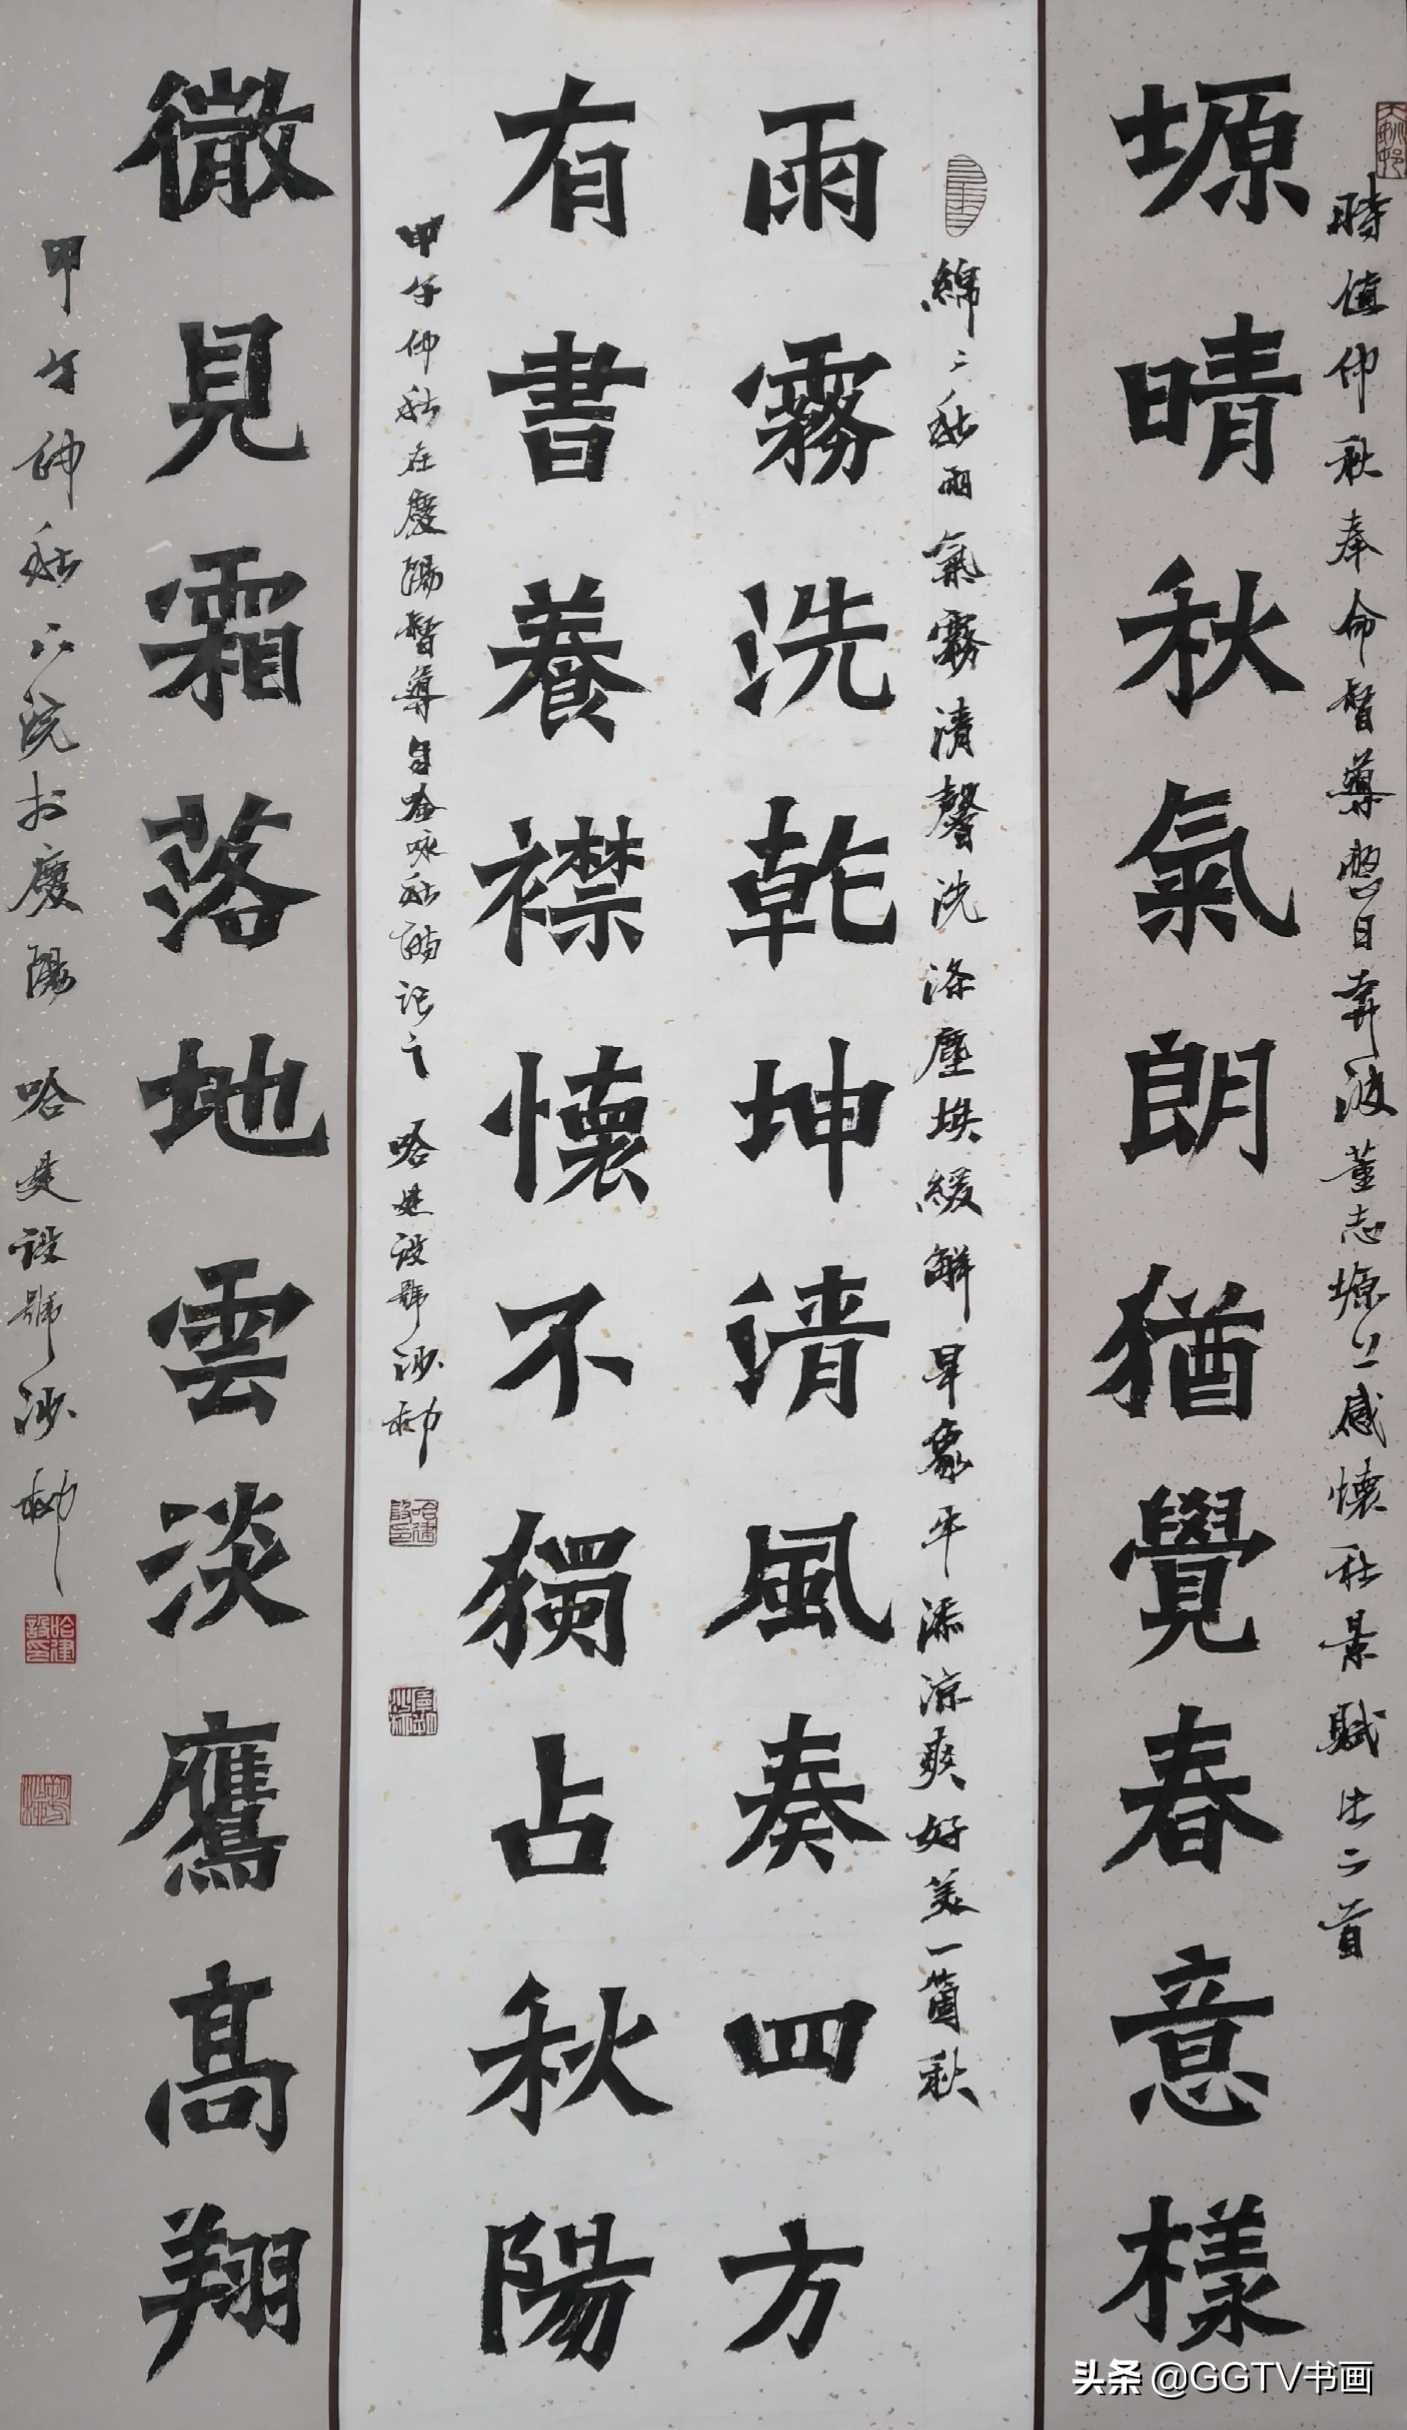 時值仲秋奉命督導整日奔波董志塬上感懷秋景賦此二首
塬晴秋氣朗猶覺春意樣
綿綿秋雨氣霧清馨洗滌塵埃緩解旱象平添涼爽好美一箇秋
雨霧洗乾坤清風奏四方
有書養襟懷不獨占秋陽
甲午仲秋在慶陽督導自吟詠秋
記之 哈建設號沙柳
微見霜落地雲淡鷹高翔
甲午仲秋下浣於慶陽 哈建設號沙柳
哈建設印
哈建設印
头条 @GGTV书画